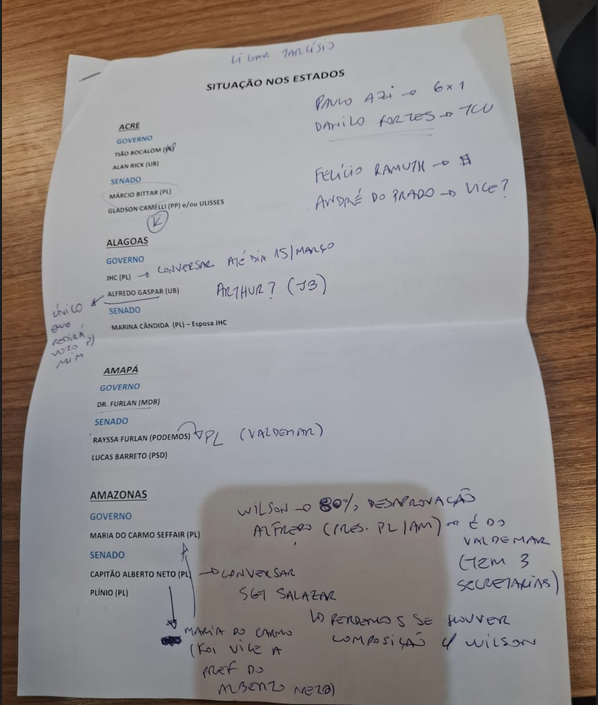 LIGAR TARCÍSIO
SITUAÇÃO NOS ESTADOS
PAULO AZI → 6x1
DANILO FORTES → TCU
FELÍCIO RAMUTH → $
ANDRÉ DO PRADO → VICE?
ACRE
GOVERNO
TIÃO BOCALOM
ALAN RICK (UB)
SENADO
MÁRCIO BITTAR (PL)
GLADSON CAMELLI (PP) e/ou ULISSES
ALAGOAS
GOVERNO
JHC (PL) → CONVERSAR ATÉ DIA 15/MARÇO
ALFREDO GASPAR (UB)
ARTHUR? (JB)
ÚNICO
QUE
PEDIRÁ
VOTO P/
MIM
SENADO
MARINA CÂNDIDA (PL) – Esposa JHC
AMAPÁ
GOVERNO
DR. FURLAN (MDB)
SENADO
RAYSSA FURLAN (PODEMOS) → PL (VALDEMAR)
LUCAS BARRETO (PSD)
AMAZONAS
GOVERNO
MARIA DO CARMO SEFFAIR (PL)
SENADO
CAPITÃO ALBERTO NETO (PL)
PLÍNIO (PL)
WILSON → 80% DESAPROVAÇÃO
ALFREDO (PRES. PL/AM) → É DO
VALDEMAR
(TEM 3
SECRETARIAS)
→ CONVERSAR
SGT SALAZAR
↳ PERDEMOS SE HOUVER
COMPOSIÇÃO C/ WILSON
MARIA DO CARMO
(FOI VICE A
PREF DO
ALBERTO NETO)